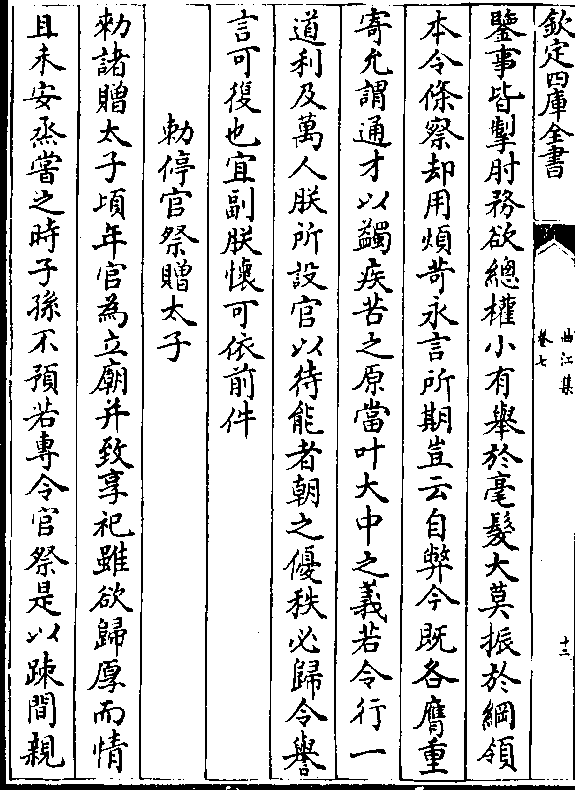 欽定四庫全書
曲江集
卷七
十三
鑒事皆掣肘務欲總權小有舉於毫髮大莫振於綱領
本令條察却用煩苛永言所期豈云自弊今既各膺重
寄允謂通才以蠲疾苦之原當叶大中之義若令行一
道利及萬人朕所設官以待能者朝之優秩必歸令譽
言可復也宜副朕懷可依前件
勅停官祭贈太子
勅諸贈太子頃年官為立廟并致享祀雖欲歸厚而情
且未安烝嘗之時子孫不預若專令官祭是以疎間親